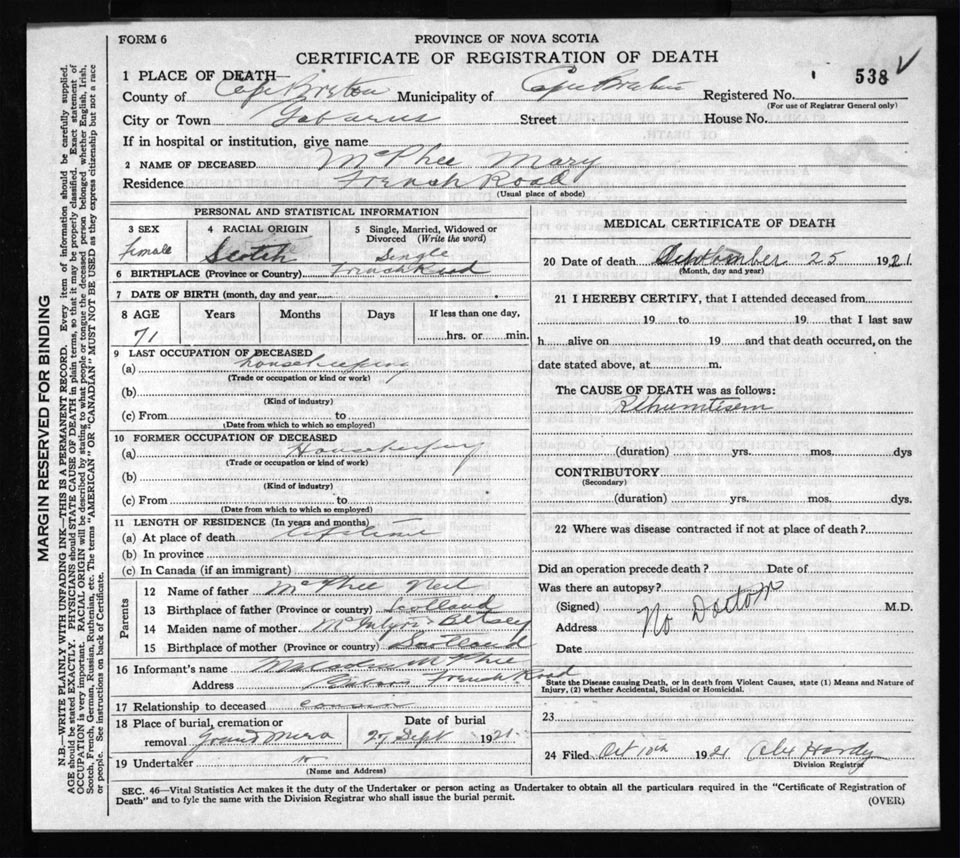 FORM 6
PROVINCE OF NOVA SCOTIA
CERTIFICATE OF REGISTRATION OF DEATH
1 PLACE OF DEATH—
County of Cape Breton Municipality of Cape Breton Registered No. 538
(For use of Registrar General only)
City or Town Gabarus Street House No.
If in hospital or institution, give name
2 NAME OF DECEASED McPhee Mary
Residence French Road
(Usual place of abode)
PERSONAL AND STATISTICAL INFORMATION
3 SEX female
4 RACIAL ORIGIN Scotch
5 Single, Married, Widowed or Divorced (Write the word) Single
6 BIRTHPLACE (Province or Country) French Road
7 DATE OF BIRTH (month, day and year)
8 AGE Years Months Days If less than one day,
71 hrs. or min.
9 LAST OCCUPATION OF DECEASED
(a) housekeeping
(Trade or occupation or kind or work)
(b)
(Kind of industry)
(c) From to
(Date from which to which so employed)
10 FORMER OCCUPATION OF DECEASED
(a) Housekeeping
(Trade or occupation or kind of work)
(b)
(Kind of industry)
(c) From to
(Date from which to which so employed)
11 LENGTH OF RESIDENCE (In years and months)
(a) At place of death lifetime
(b) In province
(c) In Canada (if an immigrant)
Parents
12 Name of father McPhee Neil
13 Birthplace of father (Province or country) Scotland
14 Maiden name of mother McIntyre Betsey
15 Birthplace of mother (Province or country) Scotland
16 Informant's name McPhee
Address French Road
17 Relationship to deceased cousin
18 Place of burial, cremation or removal Grand Mira
Date of burial 27 Sept 1921
19 Undertaker
(Name and Address)
MEDICAL CERTIFICATE OF DEATH
20 Date of death September 25 1921
(Month, day and year)
21 I HEREBY CERTIFY, that I attended deceased from
19 to 19 that I last saw
h alive on 19 and that death occurred, on the
date stated above, at m.
The CAUSE OF DEATH was as follows:
Rhumtisem
(duration) yrs. mos. dys
CONTRIBUTORY
(Secondary)
(duration) yrs. mos. dys.
22 Where was disease contracted if not at place of death?
Did an operation precede death? Date of
Was there an autopsy?
(Signed) No Doctor M.D.
Address
Date
State the Disease causing Death, or in death from Violent Causes, state (1) Means and Nature of
Injury, (2) whether Accidental, Suicidal or Homicidal.
23
24 Filed Oct 10th 1921 Alex Hardy
Division Registrar
SEC. 46—Vital Statistics Act makes it the duty of the Undertaker or person acting as Undertaker to obtain all the particulars required in the "Certificate of Registration of
Death" and to fyle the same with the Division Registrar who shall issue the burial permit.
(OVER)
MARGIN RESERVED FOR BINDING
N.B.—WRITE PLAINLY WITH UNFADING INK—THIS IS A PERMANENT RECORD. Every item of information should be carefully supplied.
AGE should be stated EXACTLY. PHYSICIANS should STATE CAUSE OF DEATH in plain terms, so that it may be properly classified. Exact statement of
OCCUPATION is very important. RACIAL ORIGIN will be described by stating to what people or tongue the deceased person belonged whether English, Irish,
Scotch, French, German, Russian, Ruthenian, etc. The terms "AMERICAN" OR "CANADIAN" MUST NOT BE USED as they express citizenship but not a race
or people. See instructions on back of Certificate.